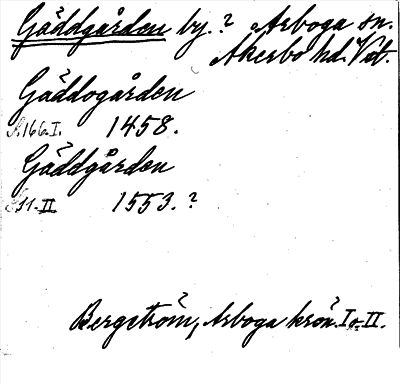 Gäddgården by. ? Arboga sn.
Åkerbo hd. Vst.
Gäddogården
S. 166. I. 1458.
Gäddgården
S 11-II 1553. ?
Bergström, Arboga krön. I o. II.